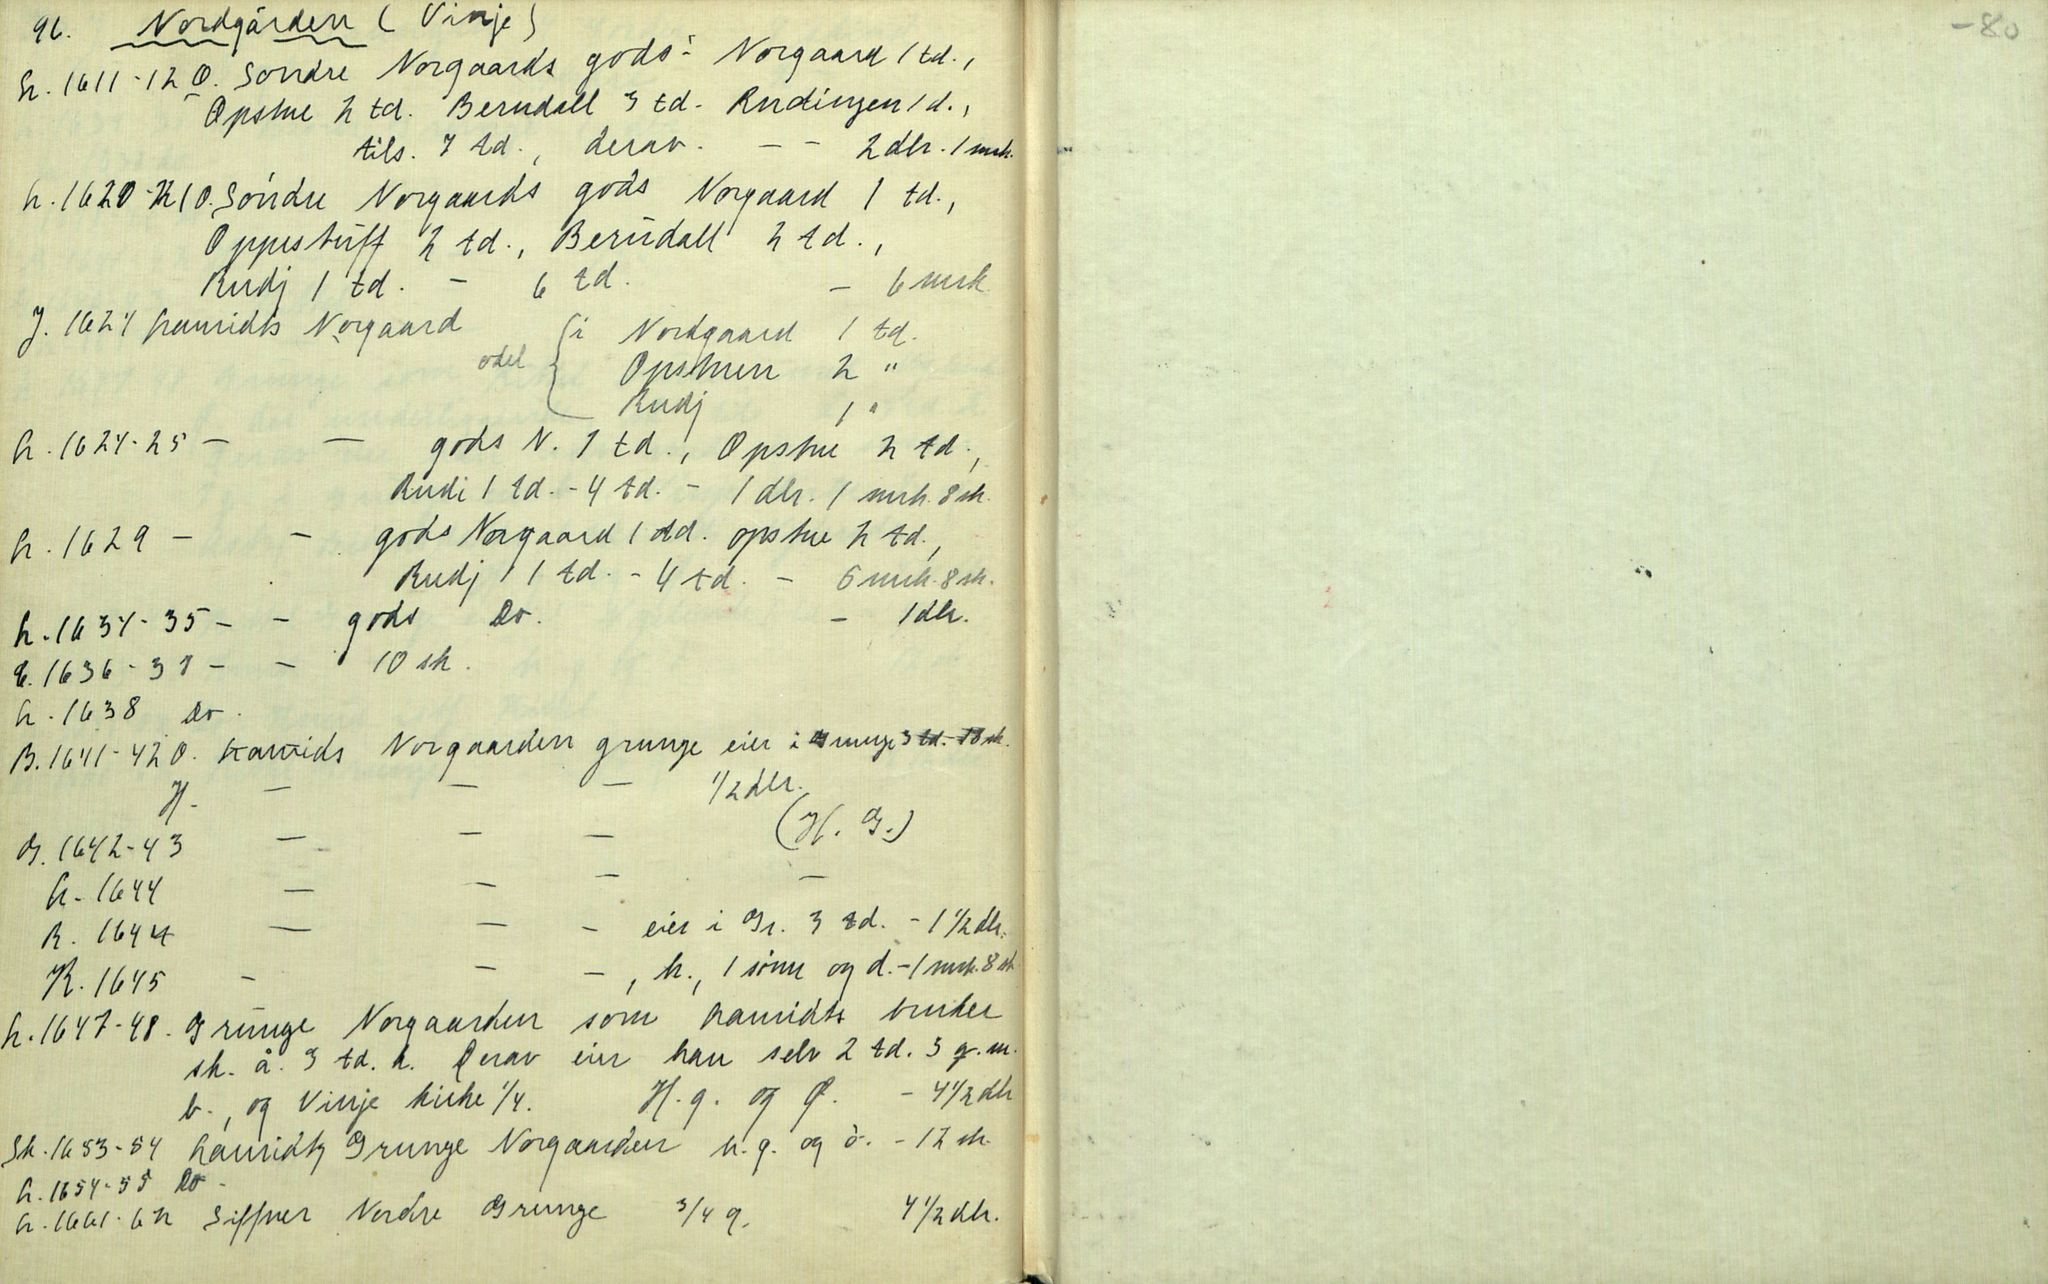 96. Nordgården (Vinje)
h. 1611-12 O. Sondre Norgaards gods: Norgaard 1 td.,
Opstue 2 td. Berudall 3 td. Rudingen 1 d.,
tils. 7 td., derav. - - 2 dlr. 1 mrk.
h. 1620-21 O. Söndre Norgaards gods Norgaard 1 td.,
Oppestuff 2 td., Berüdall 2 td.,
Rudj 1 td. - 6 td. - 6 mrk
J. 1624 Norgaard i Nordgaard 1 td.
odel Opstuen 2 "
Rudj 1 "
h. 1624-25 - - gods N. 1 td., Opstue 2 td.,
Rudi 1 td. - 4 td. - 1 dlr. 1 mrk. 8 sk.
h. 1629 - - gods Norgaard 1 td. opstue 2 td.,
Rudj 1 td. - 4 td. - 6 mrk. 8 sk.
h. 1634-35 - - gods Do. - 1 dlr.
1636-37 - - 10 sk.
h. 1638 Do.
B. 1641-42 O. Norgaarden grunge eier i Grunge 3 td. 18 sk.
H. - - - 1/2 dlr.
G. 1642-43 - - - (H. G.)
h. 1644 - - - -
R. 1644 - - - eier i Gr. 3 td. - 1 1/2 dlr.
K. 1645 - - -, k., 1 sönn og d. - 1 mrk. 8 sk
h. 1647-48. Grunge Norgaarden som bruker
sk. å. 3 td. h. Derav eier han selv 2 td. 3 q. m.
b., og Vinje kirke 1/4. H. q. og Ø. - 4 1/2 dlr
Sk. 1653-54 Grunge Norgaarden h. q. og ö. - 12 sk.
h. 1654-55 Do -
h. 1661-62 Siffuer Nordre Grunge 3/4 q. 4 1/2 dlr.
-80